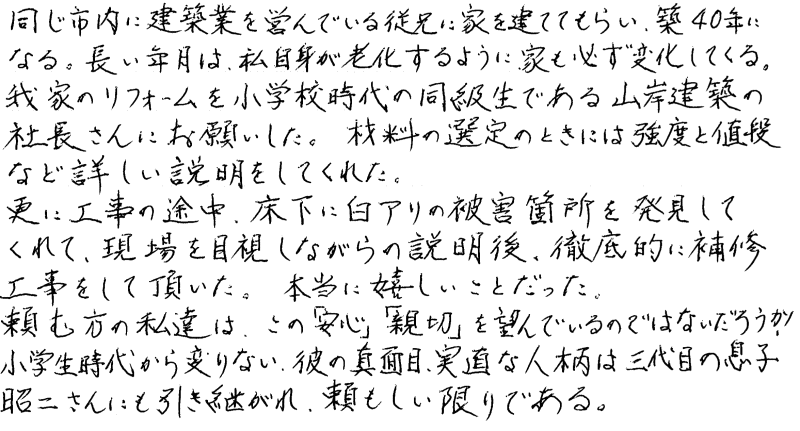 同じ市内に建築業を営んでいる従兄に家を建ててもらい、築40年に
なる。長い年月は、私自身が老化するように家も必ず変化してくる。
我家のリフォームを小学校時代の同級生である山岸建築の
社長さんにお願いした。 材料の選定のときには強度と値段
など詳しい説明をしてくれた。
更に工事の途中、床下に白アリの被害箇所を発見して
くれて、現場を目視しながらの説明後、徹底的に補修
工事をして頂いた。 本当に嬉しいことだった。
頼む方の私達は、この「安心」「親切」を望んでいるのではないだろうか!
小学生時代から変りない、彼の真面目、実直な人柄は三代目の息子
昭二さんにも引き継がれ、頼もしい限りである。